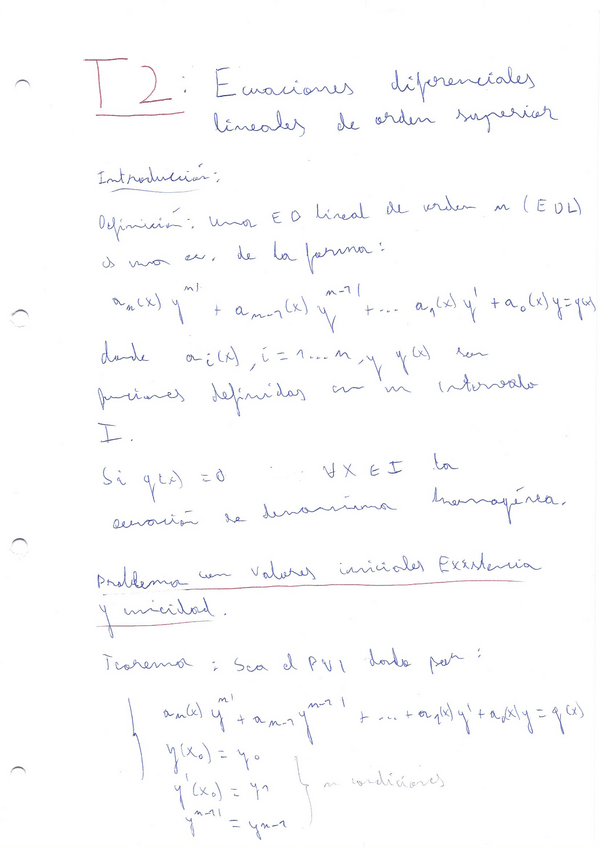 T2: Ecuaciones diferenciales
lineales de orden superior
Introducción:
Definición: una ED lineal de orden n (EDL)
es una ec. de la forma:
aₙ(x) yⁿ' + aₙ₋₁(x) yⁿ⁻¹' + ... a₁(x) y' + a₀(x) y = g(x)
donde aᵢ(x), i = 1...n, y g(x) son
funciones definidas en un intervalo
I.
Si g(x) = 0 ∀x ∈ I la
ecuación se denomina homogénea.
Problema con valores iniciales Existencia
y unicidad.
Teorema: Sea el PVI dado por:
aₙ(x) yⁿ' + aₙ₋₁ yⁿ⁻¹' + ... + a₁(x) y' + a₀(x) y = g(x)
y(x₀) = y₀
y'(x₀) = y₁ } n condiciones
yⁿ⁻¹' = yₙ₋₁